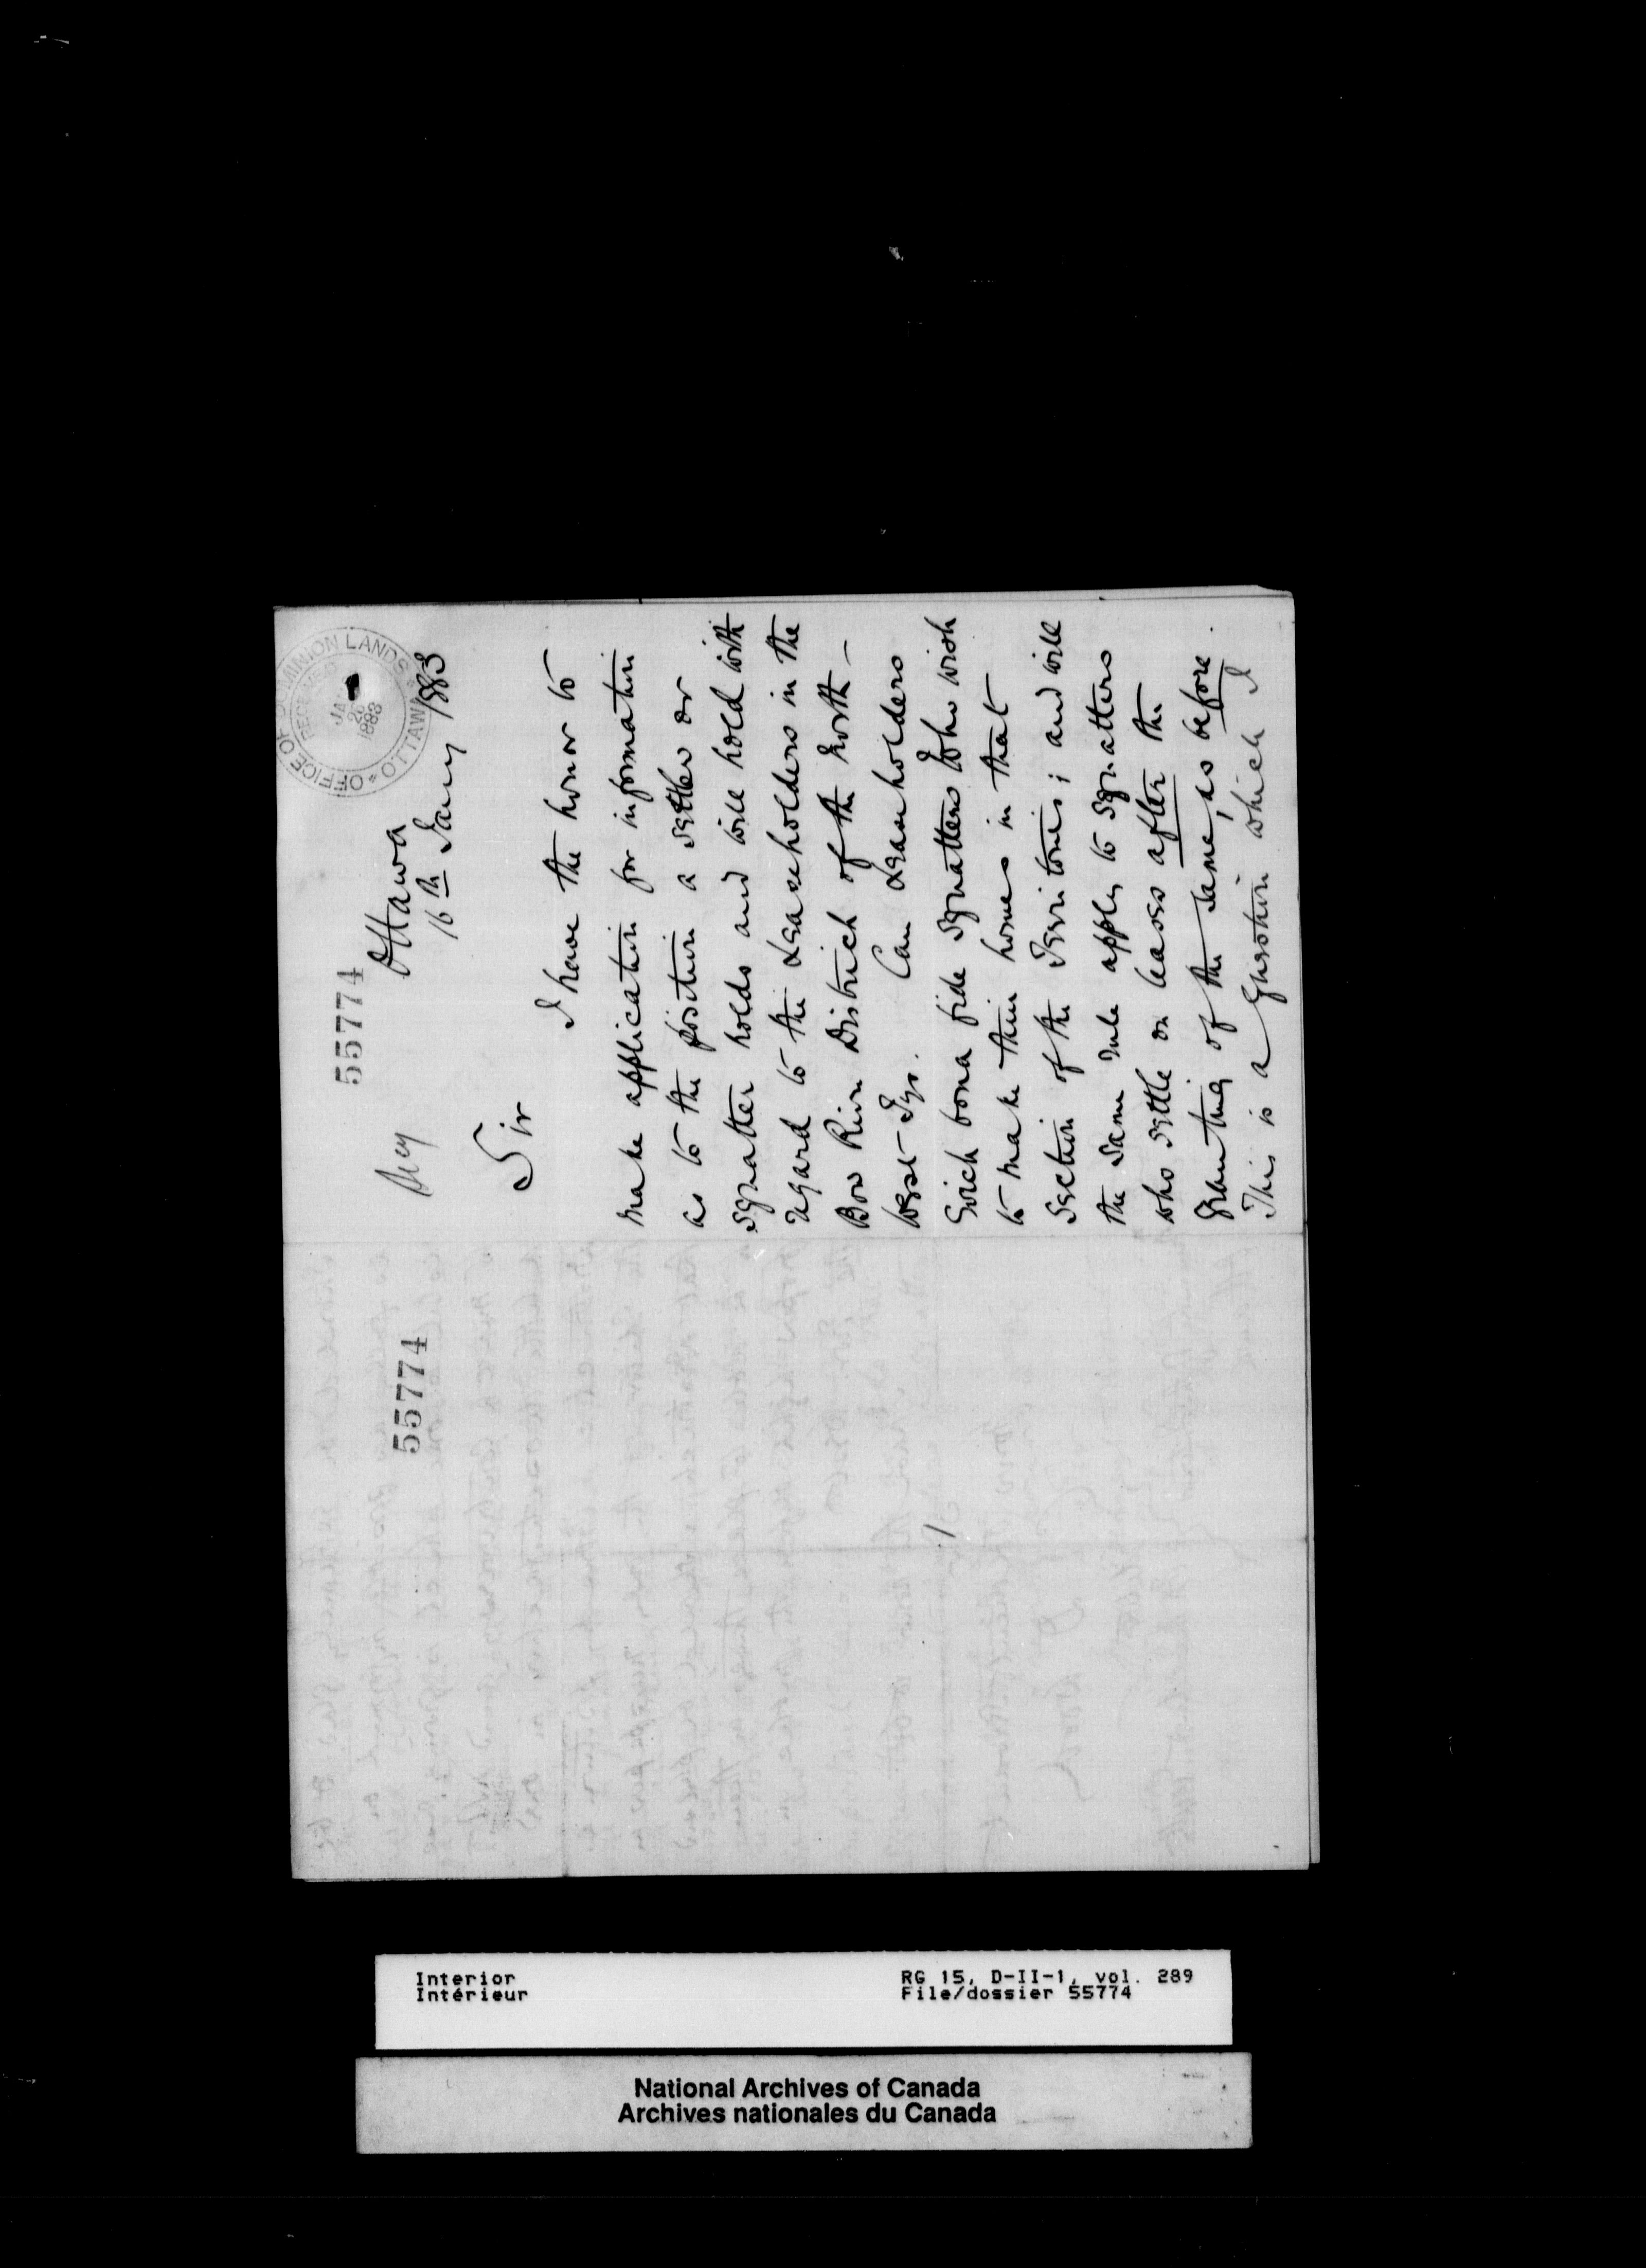 55774
OFFICE OF DOMINION LANDS
OTTAWA
RECEIVED
JA 20
1883
Ottawa
16th Jany 1883
Sir
I have the honor to
make application for information
as to the position a settler or
squatter holds and will hold with
regard to the Leaseholders in the
Bow River District of the North-
West Tys. Can Leaseholders
Evict bona fide squatters who wish
to make their homes in that
section of the Territories; and will
the same rule apply to squatters
who settle on leases after the
granting of the same, as before.
This is a question which I
55774
Interior
Intérieur
RG 15, D-II-1, vol. 289
File/dossier 55774
National Archives of Canada
Archives nationales du Canada